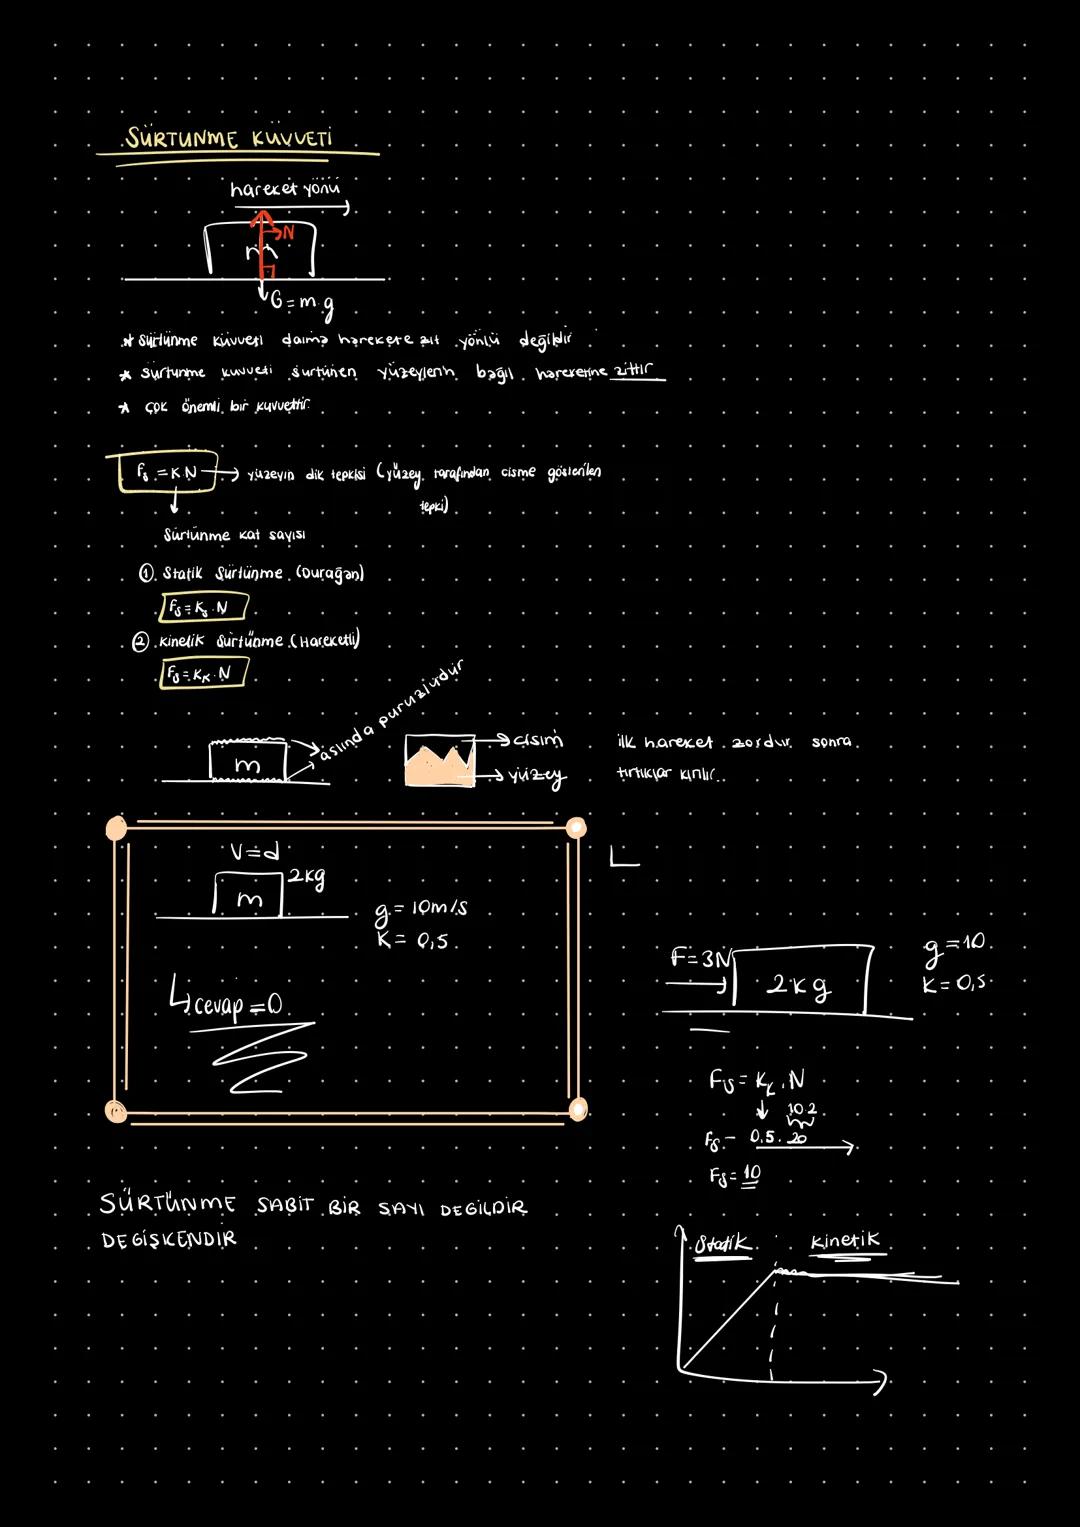 SÜRTÜNME KUVVETİ
hareket yönü
N
m
G=m.g
* Sürtünme kuvveti daima harekete zıt yönlü değildir.
* Sürtünme kuvveti sürtünen yüzeylerin bağıl hareketine zıttır
* Çok önemli bir kuvvettir.
Fs = K.N → yüzeyin dik tepkisi (yüzey tarafından cisme gösterilen
tepki)
Sürtünme kat sayısı
① Statik Sürtünme (Durağan)
Fs = Ks.N
② Kinetik Sürtünme (Hareketli)
Fs = KK.N
aslında pürüzlüdür
m
cisim
yüzey
ilk hareket zordur sonra
tırtıklar kırılır..
V=d
m 2kg
g = 10m/s
K = 0,5
↳ cevap = 0
F=3N
2kg
g=10
K = 0,5
Fs = Kk.N
10.2
Fs = 0.5.20
Fs = 10
SÜRTÜNME SABİT BİR SAYI DEĞİLDİR
DEĞİŞKENDİR
Statik
Kinetik